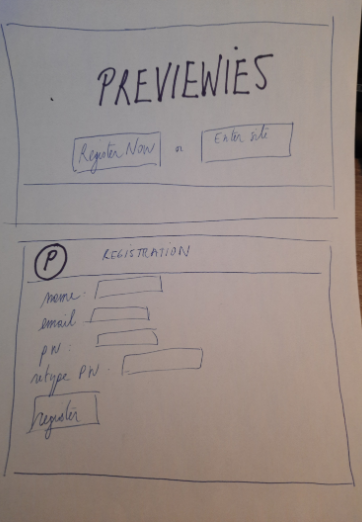 PREVIEWIES
Register Now or Enter site
P REGISTRATION
name:
email
PW:
retype PW:
register